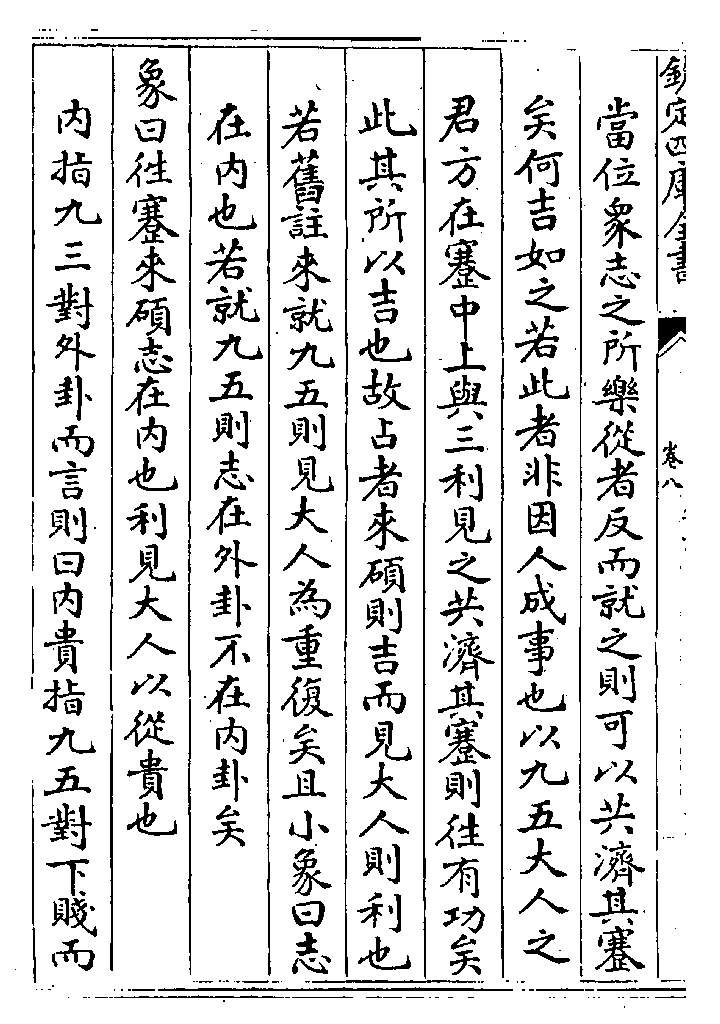 欽定四庫全書
卷八
當位衆志之所樂從者反而就之則可以共濟其蹇
矣何吉如之若此者非因人成事也以九五大人之
君方在蹇中上與三利見之共濟其蹇則徃有功矣
此其所以吉也故占者來碩則吉而見大人則利也
若舊註來就九五則見大人為重復矣且小象曰志
在内也若就九五則志在外卦不在内卦矣
象曰徃蹇來碩志在内也利見大人以從貴也
内指九三對外卦而言則曰内貴指九五對下賤而